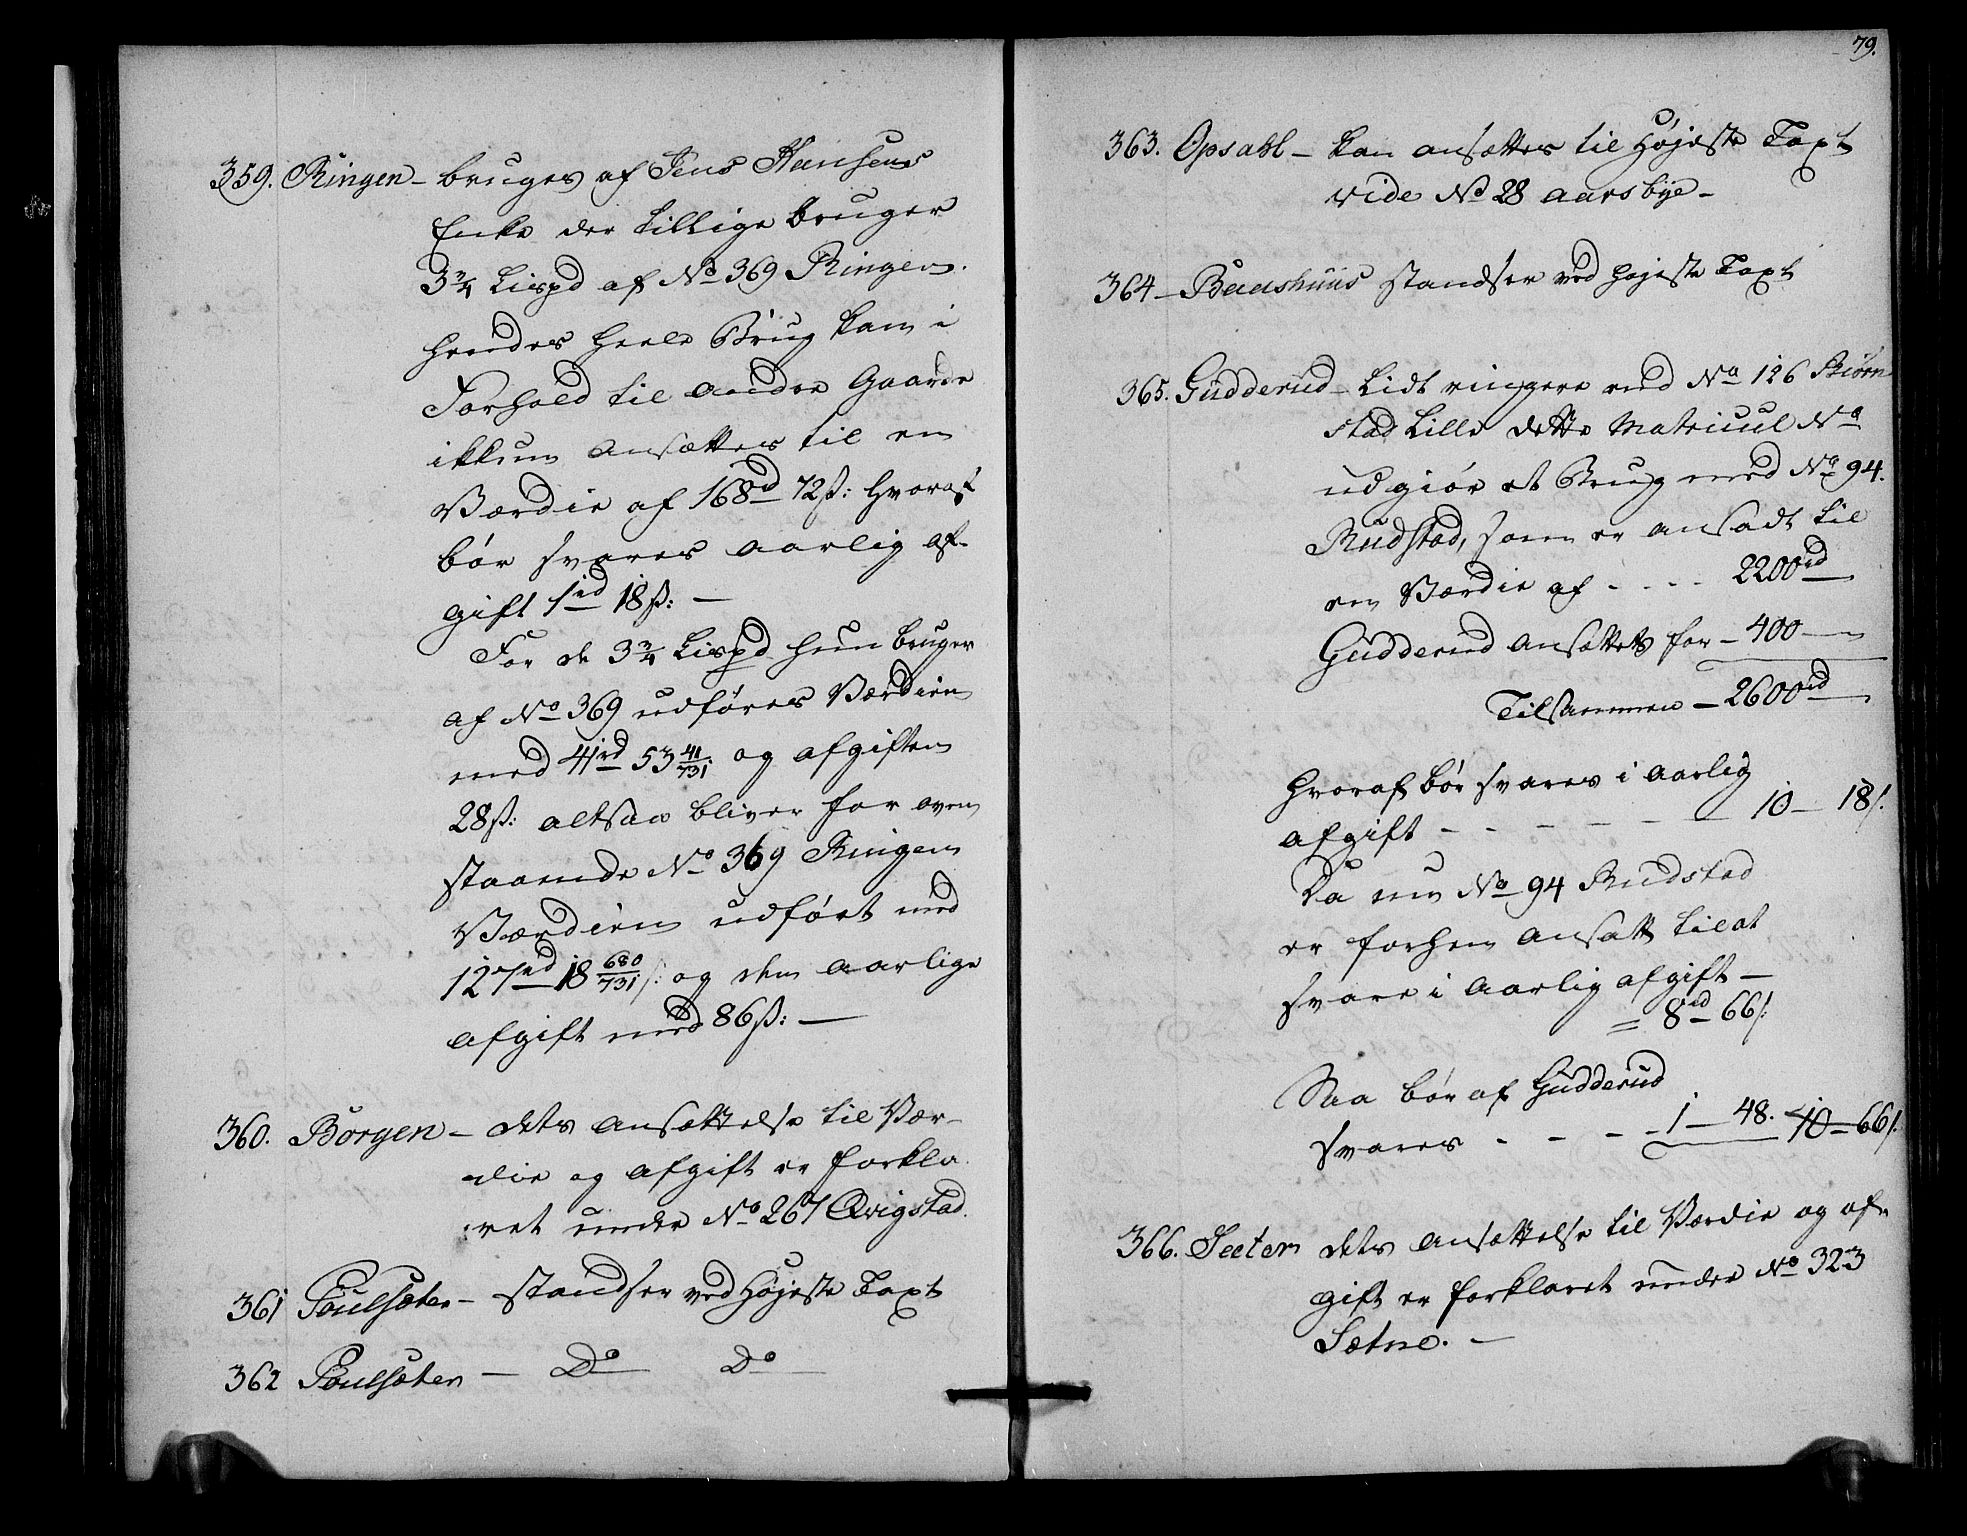 359. Ringen - bruges af Jens Hansens
Enke der tillige bruger
3¾ Lispd af No 369 Ringen.
hendes heele Brug kan i
Forhold til andre Gaarde
ikkun ansættes til en
Værdie af 168rd 72ß: hvoraf
bør svares aarlig af-
gift 1rd 18ß: —
For de 3¾ Lispd hun bruger
af No 369 udføres Værdien
med 41rd 53 41/731 og afgiften
28ß: altsaa bliver for oven
staaende No 369 Ringen
Værdien udført med
127rd 18 680/731 ß: og den aarlige
afgift med 86ß: —
360. Borgen - dets ansættelse til Vær-
die og afgift er forkla
ret under No 267 Qvigstad.
361 Poulsæter - standser ved Højeste Taxt
362 Poulsæter - Do Do
79.
363. Opsahl - kan ansættes til Højeste Taxt
vide No 28 Aarsbye -
364 - Baashuus standser ved højeste Taxt
365. Gudderud - Lidt ringere end No 126 Biørn
stad Lille dette Matricul No
udgiør et Brug med No 94.
Rudstad, som er ansadt til
en Værdie af - - - - 2200rd
Gudderud ansættets for - 400 —
Tilsammen - 2600rd
hvoraf bør svares i aarlig
afgift - - - - - - 10 - 18ß.
Da nu No 94 Rudstad
er forhen ansatt til at
svare i aarlig afgift —
= 8rd 66ß:
Saa bør af Gudderud
svares - - - - 1 - 48. 10 - 66ß.
366. Seeter dets ansættelse til Værdie og af-
gift er forklaret under No 323
Sætne. —